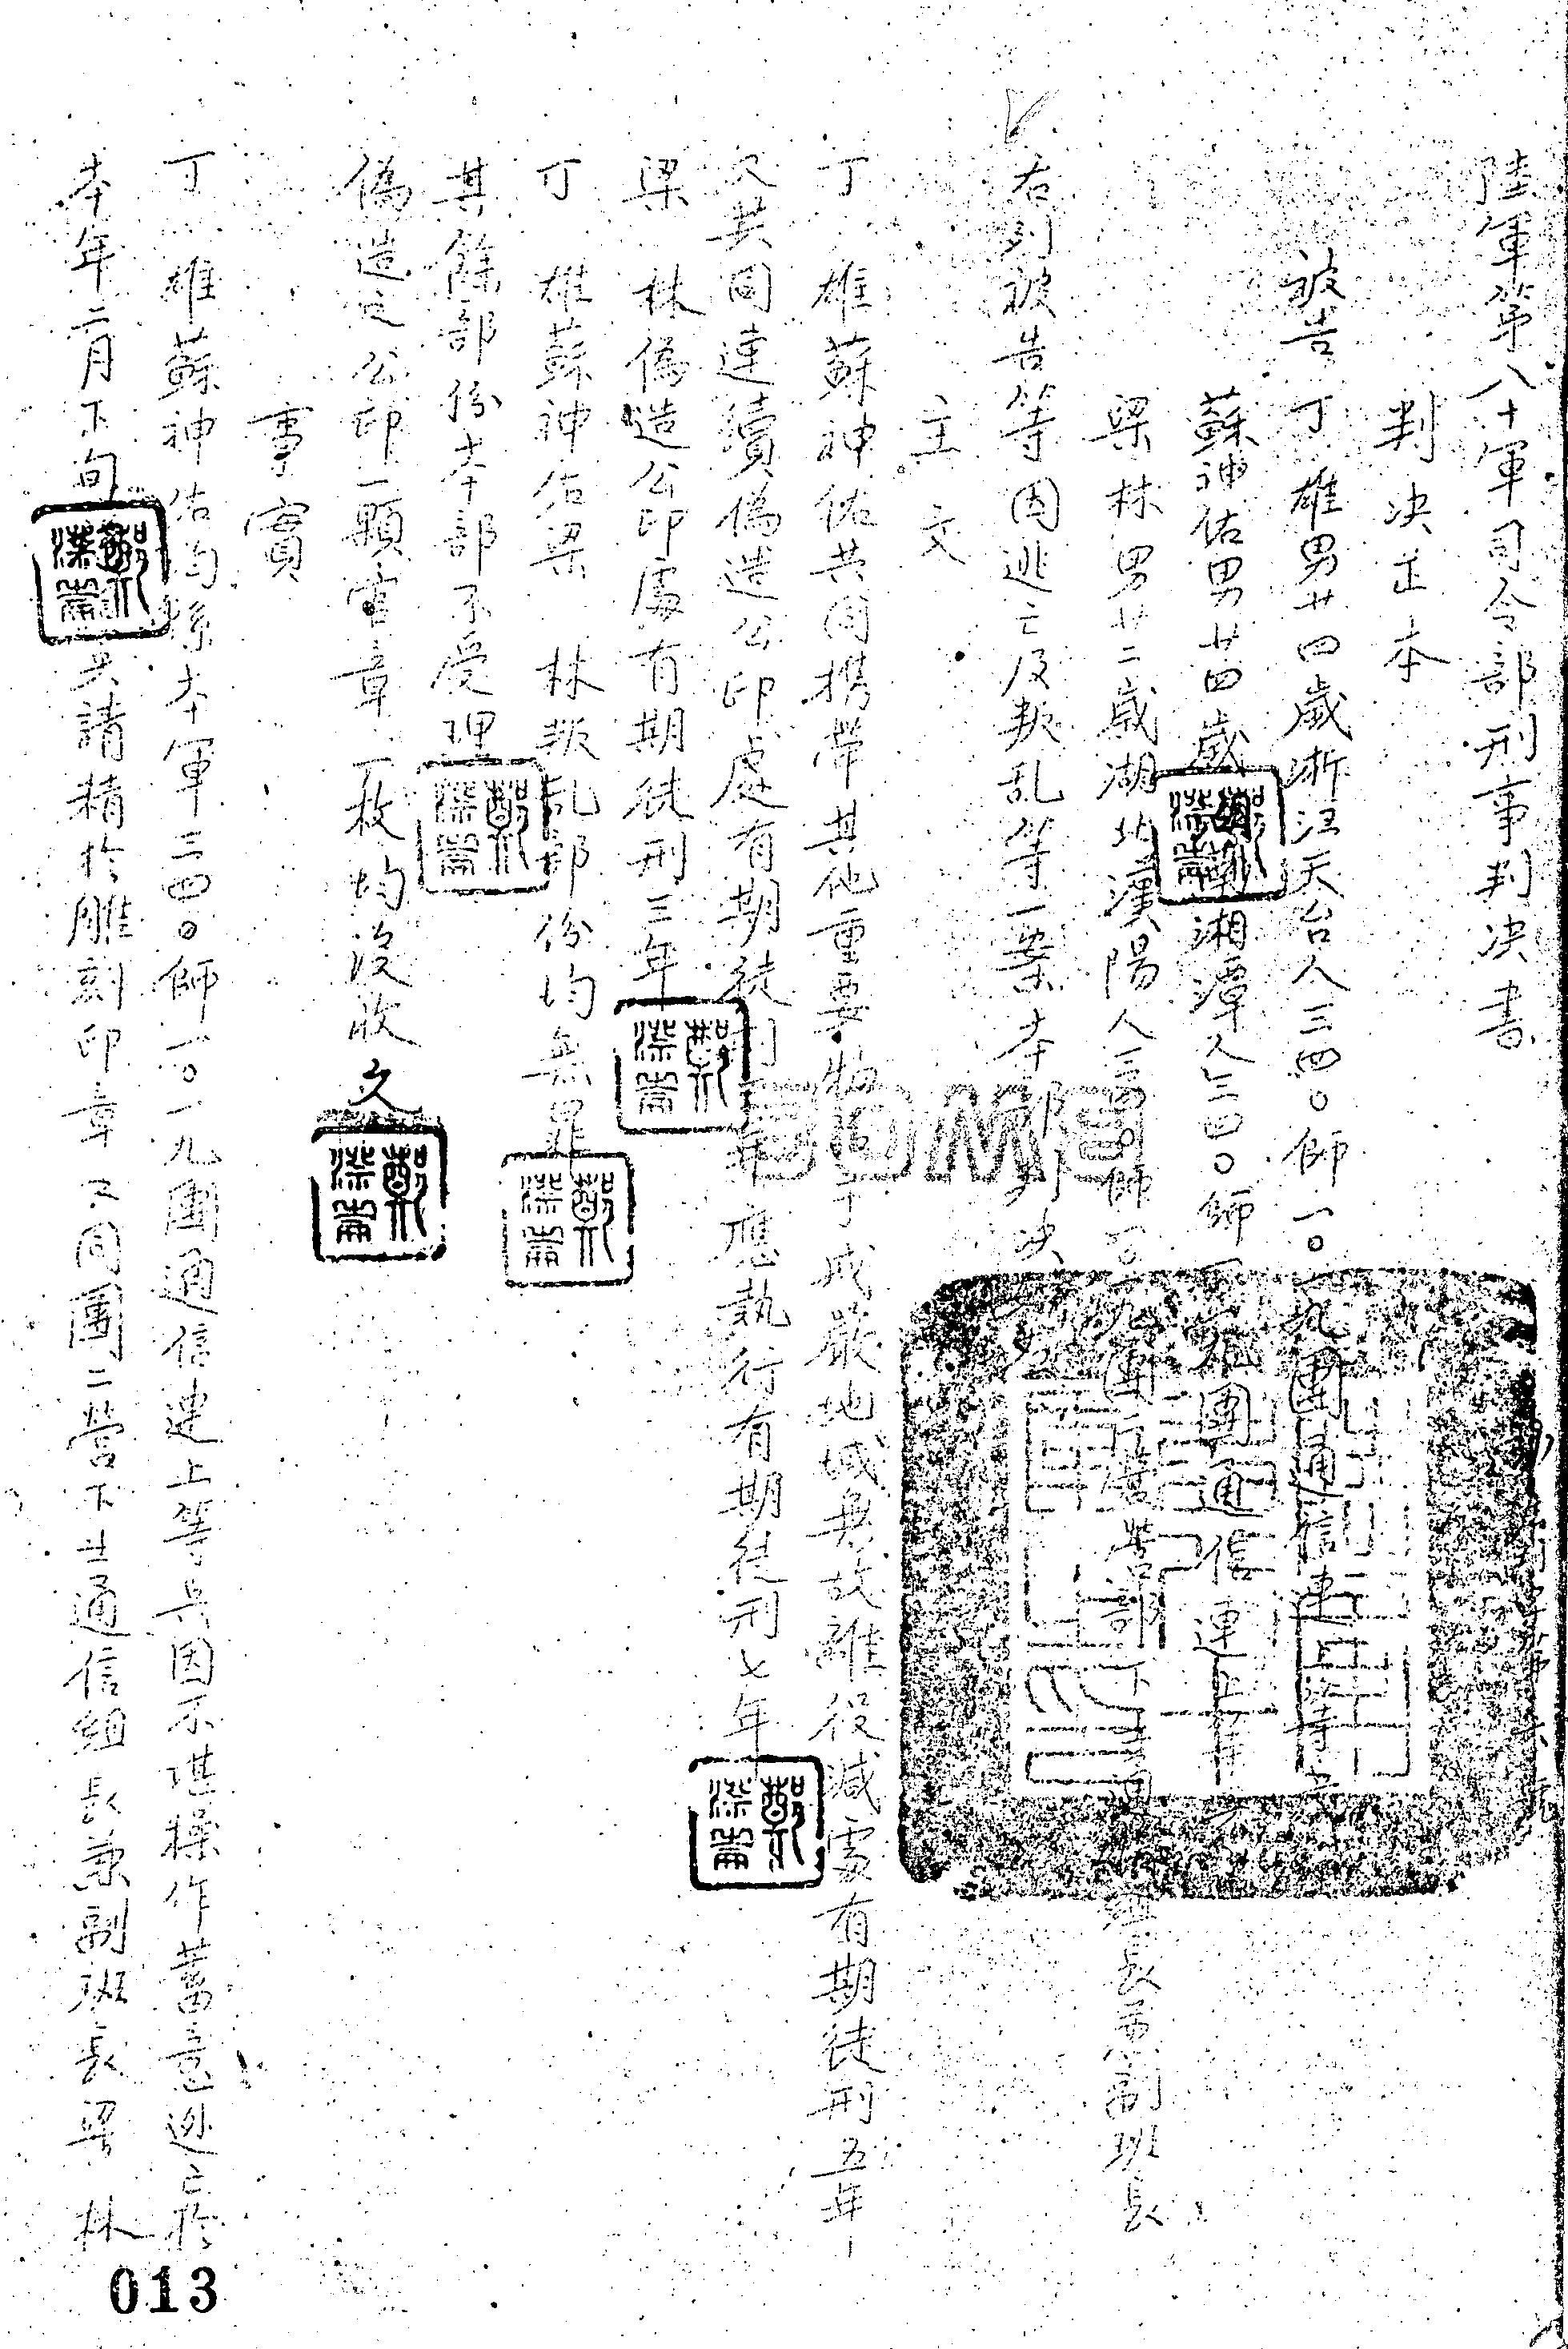 陸軍第八十軍司令部刑事判决書
判决正本
被告丁雄男廿四歲浙江天台人三四〇師一〇一九團通信連上等兵
蘇神佑男廿四歲湖南湘潭人三四〇師一〇一九團通信連上等兵
梁林男廿二歲湖北漢陽人三四〇師一〇一九團二營營部下士通信組長兼副班長
右列被告等因逃亡及叛乱等一案本部判决如
主文
丁雄蘇神佑共同携帶其他重要物品于戒嚴地域無故離役减處有期徒刑五年
又共同連續偽造公印處有期徒刑三年應執行有期徒刑七年
梁林偽造公印處有期徒刑三年
丁雄蘇神佑梁林叛乱部份均無罪
其餘部份本部不受理
偽造之公印一顆官章一枚均沒收
事實
丁雄蘇神佑均係本軍三四〇師一〇一九團通信連上等兵因不堪操作蓄意逃亡於
本年二月下旬共請精於雕刻印章之同團二營下士通信組長兼副班長梁林
013